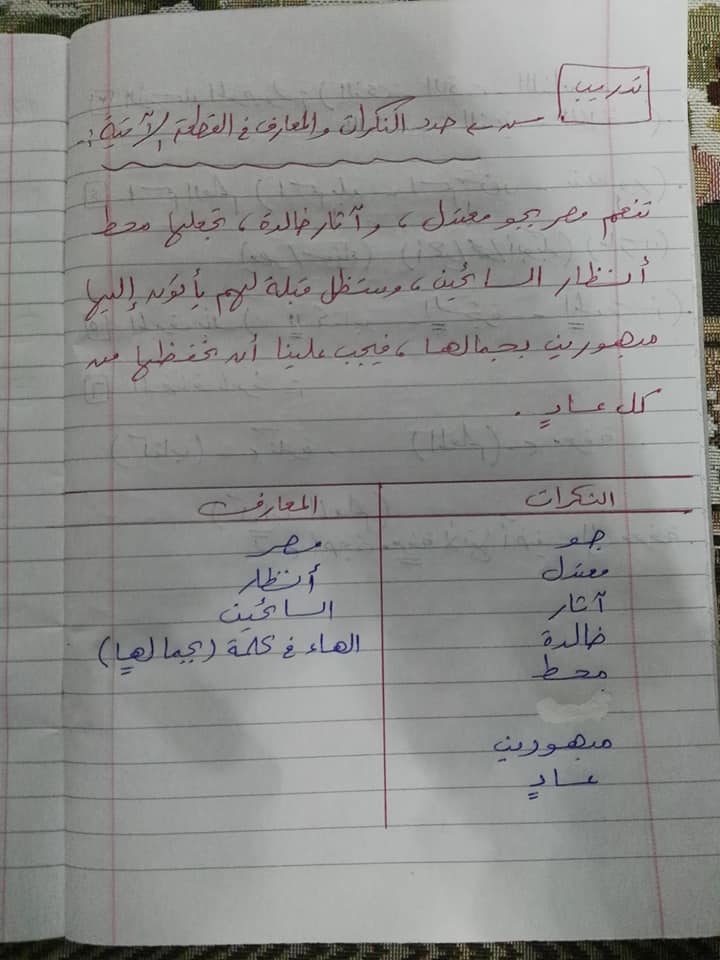 تدريب
س -> حدد النكرات والمعارف في القطعة الآتية :.
تنعم مصر بجو معتدل ، وآثار خالدة ، تجعلها محط
أنظار السائحين ، وستظل قبلة لهم يأتون إليها
مبهورين بجمالها ، فيجب علينا أن نحفظها من
كل عادٍ .
النكرات
المعارف
جو
مصر
معتدل
أنظار
آثار
السائحين
خالدة
الهاء في كلمة (بجمالها)
محط
مبهورين
عادٍ